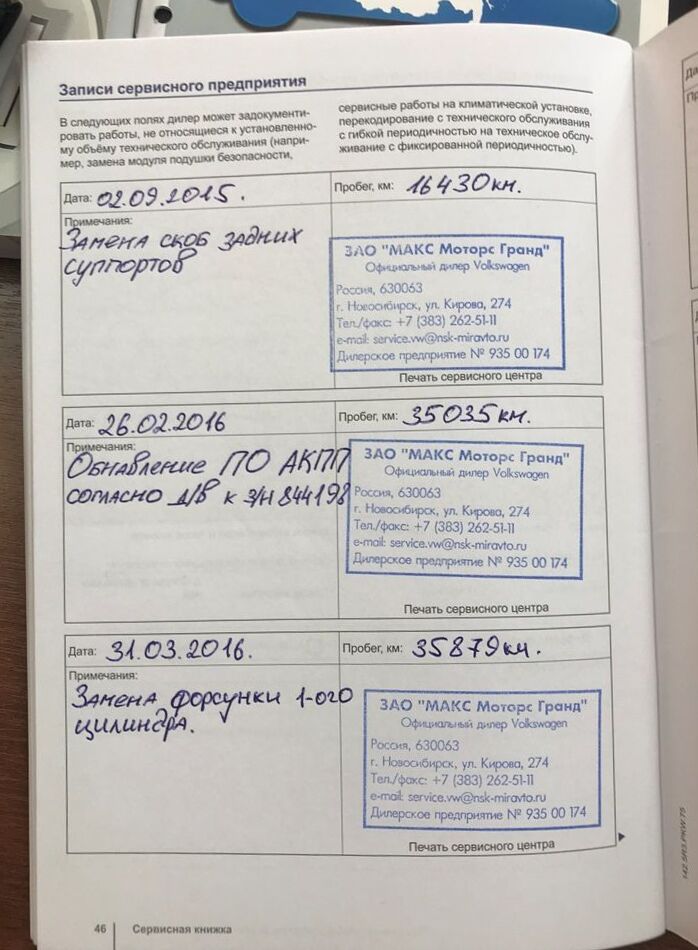 Записи сервисного предприятия
В следующих полях дилер может задокументи-
ровать работы, не относящиеся к установленно-
му объёму технического обслуживания (напри-
мер, замена модуля подушки безопасности,
сервисные работы на климатической установке,
перекодирование с технического обслуживания
с гибкой периодичностью на техническое обслу-
живание с фиксированной периодичностью).
Дата: 02.09.2015.
Пробег, км: 16430км.
Примечания:
Замена скоб задних
суппортов
ЗАО "МАКС Моторс Гранд"
Официальный дилер Volkswagen
Россия, 630063
г. Новосибирск, ул. Кирова, 274
Тел./факс: +7 (383) 262-51-11
e-mail: service.vw@nsk-miravto.ru
Дилерское предприятие № 935 00 174
Печать сервисного центра
Дата: 26.02.2016
Пробег, км: 35035км.
Примечания:
Обнавление ПО АКПП
согласно д/в к з/н 844198
ЗАО "МАКС Моторс Гранд"
Официальный дилер Volkswagen
Россия, 630063
г. Новосибирск, ул. Кирова, 274
Тел./факс: +7 (383) 262-51-11
e-mail: service.vw@nsk-miravto.ru
Дилерское предприятие № 935 00 174
Печать сервисного центра
Дата: 31.03.2016.
Пробег, км: 35879км.
Примечания:
Замена форсунки 1-ого
цилиндра.
ЗАО "МАКС Моторс Гранд"
Официальный дилер Volkswagen
Россия, 630063
г. Новосибирск, ул. Кирова, 274
Тел./факс: +7 (383) 262-51-11
e-mail: service.vw@nsk-miravto.ru
Дилерское предприятие № 935 00 174
Печать сервисного центра
46
Сервисная книжка